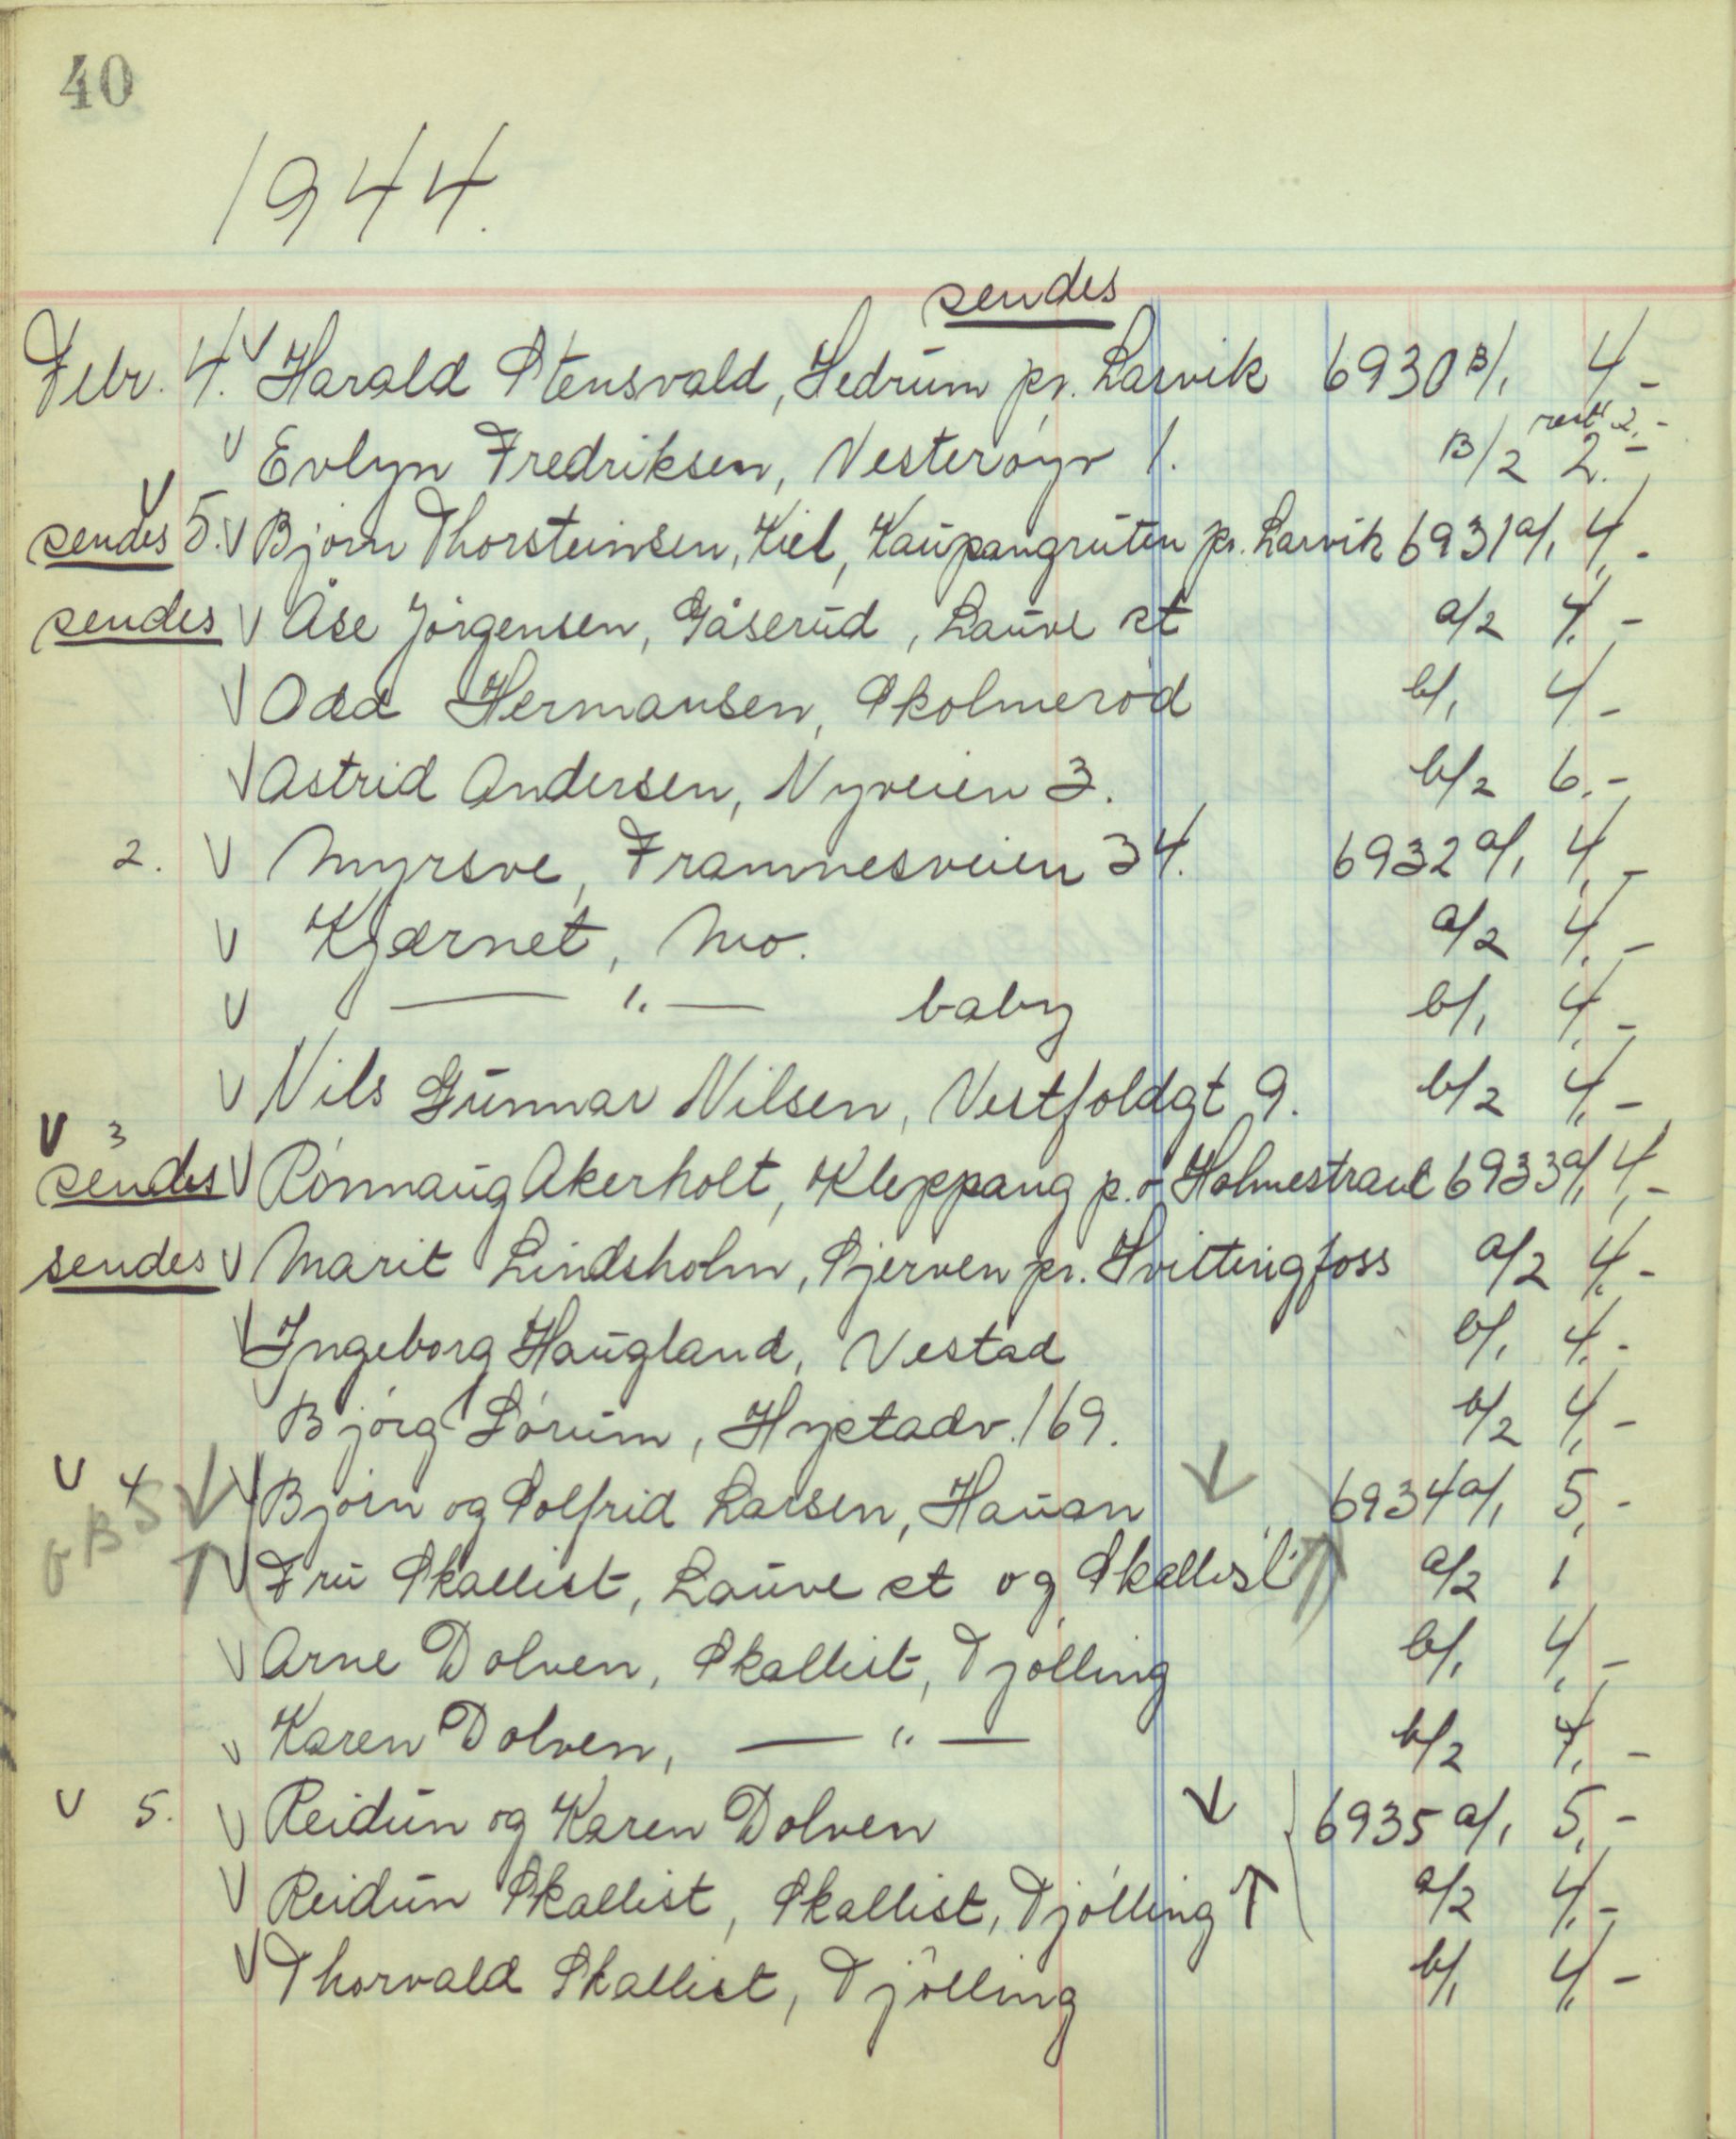 40
1944.
sendes
Febr. 4. V Harald Stensvald, Hedrum pr. Larvik 6930 B/1 4,-
rest 2,-
V Evlyn Fredriksen, Vesterøyv 1. B/2 2.-
V
sendes 5. V Bjørn Thorsteinsen, Kiel, Kaupangruten pr. Larvik 6931 a/1 4,-
sendes V Åse Jørgensen, Gåserud, Lauve st a/2 4,-
V Odd Hermansen, Skolmerød b/1 4,-
V Astrid Andersen, Nyveien 3. b/2 6,-
2. V Myrsve, Framnesveien 34. 6932 a/1 4,-
V Kjærnet, Mo. a/2 4,-
V — " — baby b/1 4,-
V Nils Gunnar Nilsen, Vestfoldgt 9. b/2 4,-
V 3
sendes V Rønnaug Akerholt, Kleppang p.å Holmestrand 6933 a/1 4,-
sendes V Marit Lindsholm, Skjerven pr. Hvittingfoss a/2 4,-
V Ingeborg Haugland, Vestad b/1 4,-
Bjørg Sørum, Hystadv. 169. b/2 4,-
V 4 ↓ V Bjørn og Solfrid Larsen, Hauan ↓ 6934 a/1 5,-
↑ V Fru Skallist, Lauve st og Skallist ↑ a/2 1
V Arne Dolven, Skallist, Tjølling b/1 4,-
V Karen Dolven, — " — b/2 4,-
V 5. V Reidun og Karen Dolven ↓ 6935 a/1 5,-
V Reidun Skallist, Skallist, Tjølling ↑ a/2 4,-
V Thorvald Skallist, Tjølling b/1 4,-